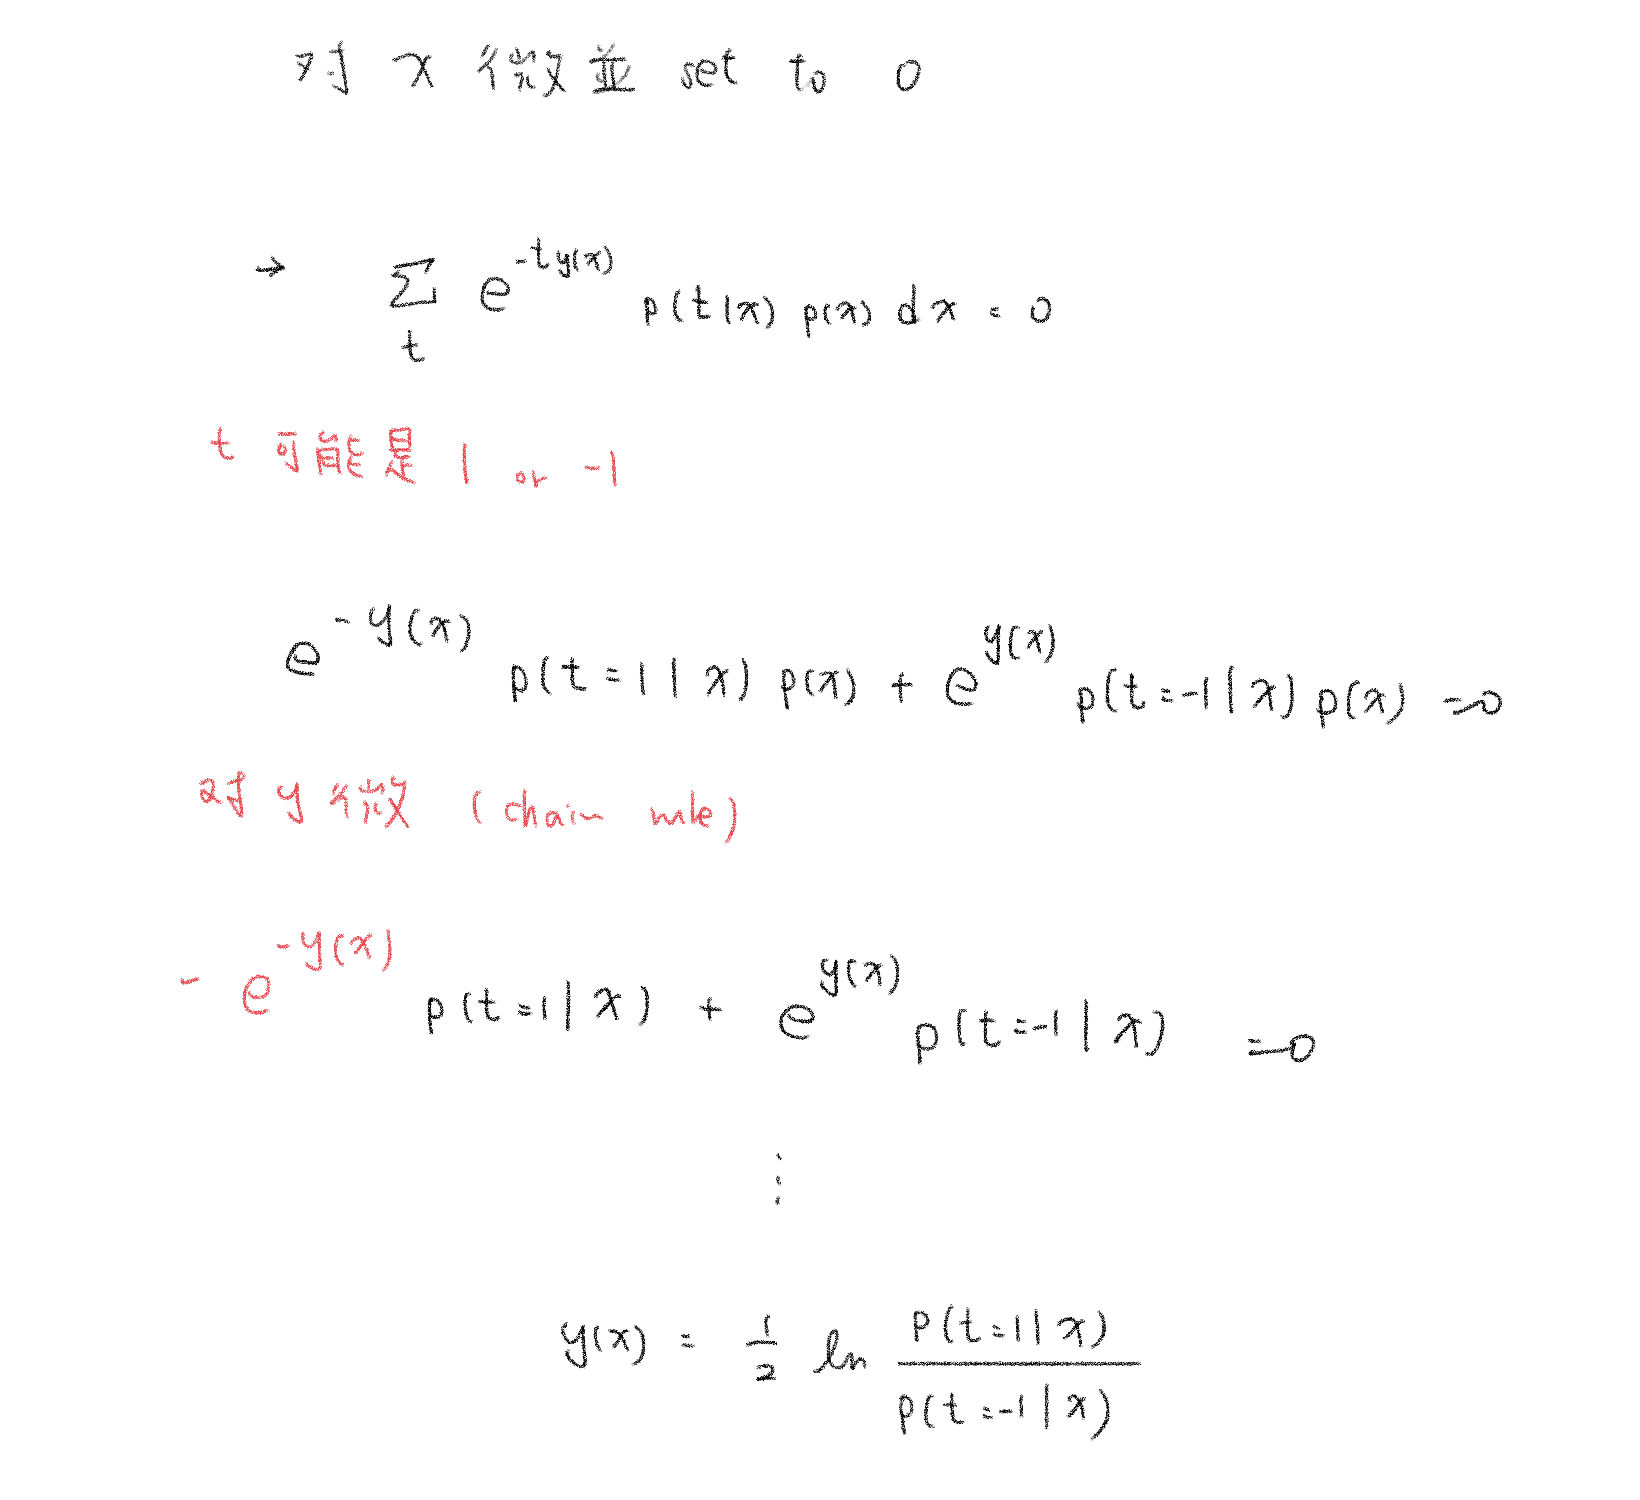 对 x 微並 set to 0
→ ∑_t e^{-t y(x)} p(t|x) p(x) dx = 0
t 可能是 1 or -1
e^{-y(x)} p(t=1|x) p(x) + e^{y(x)} p(t=-1|x) p(x) = 0
对 y 微 (chain rule)
- e^{-y(x)} p(t=1|x) + e^{y(x)} p(t=-1|x) = 0
⋮
y(x) = \frac{1}{2} ln \frac{p(t=1|x)}{p(t=-1|x)}